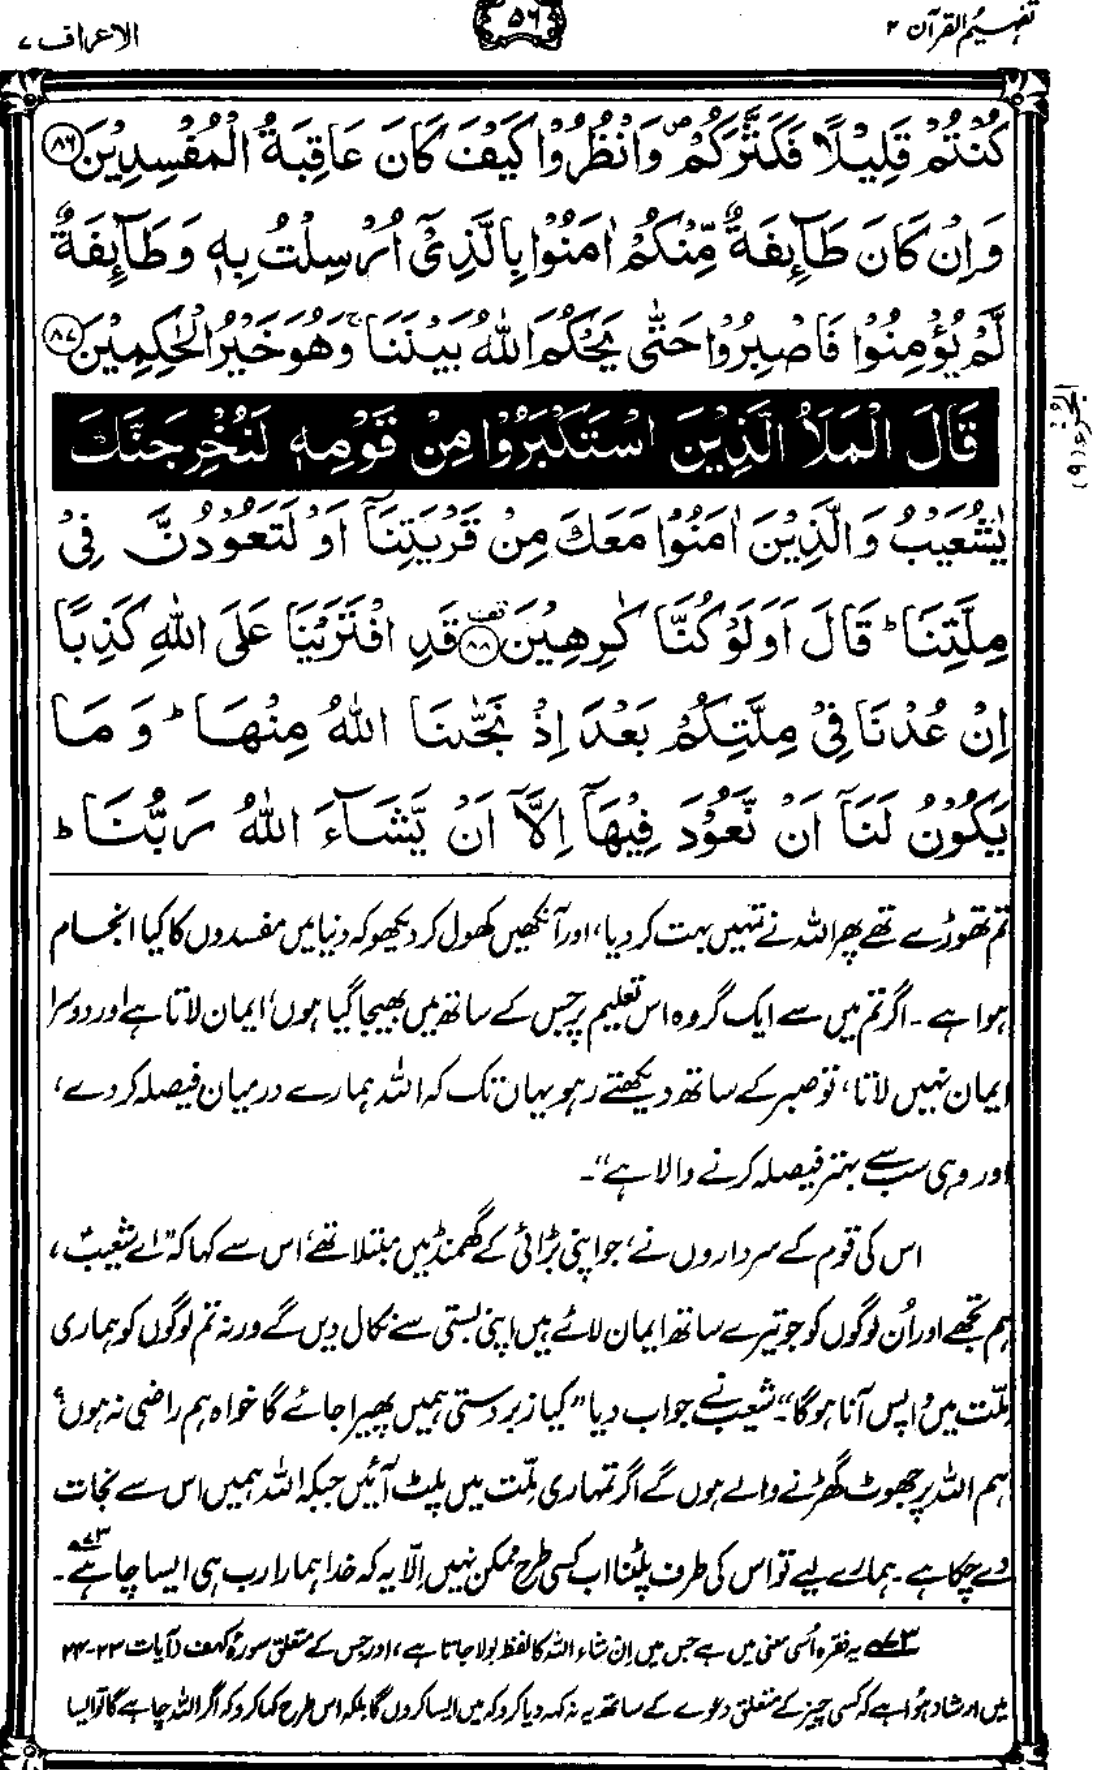 تفہیم القرآن ۲
۵۶
الاعراف ۷
كُنْتُمْ قَلِيْلًا فَكَثَّرَكُمْ ۪ وَانْظُرُوْا كَيْفَ كَانَ عَاقِبَةُ الْمُفْسِدِيْنَ ﴿۸۶﴾
وَاِنْ كَانَ طَآىِٕفَةٌ مِّنْكُمْ اٰمَنُوْا بِالَّذِيْٓ اُرْسِلْتُ بِهٖ وَطَآىِٕفَةٌ
لَّمْ يُؤْمِنُوْا فَاصْبِرُوْا حَتّٰى يَحْكُمَ اللّٰهُ بَيْنَنَا ۚ وَهُوَ خَيْرُ الْحٰكِمِيْنَ ﴿۸۷﴾
قَالَ الْمَلَاُ الَّذِيْنَ اسْتَكْبَرُوْا مِنْ قَوْمِهٖ لَنُخْرِجَنَّكَ
الجزء (۹)
يٰشُعَيْبُ وَالَّذِيْنَ اٰمَنُوْا مَعَكَ مِنْ قَرْيَتِنَآ اَوْ لَتَعُوْدُنَّ فِيْ
مِلَّتِنَا ؕ قَالَ اَوَلَوْ كُنَّا كٰرِهِيْنَ ﴿۸۸﴾ قَدِ افْتَرَيْنَا عَلَى اللّٰهِ كَذِبًا
اِنْ عُدْنَا فِيْ مِلَّتِكُمْ بَعْدَ اِذْ نَجّٰىنَا اللّٰهُ مِنْهَا ؕ وَمَا
يَكُوْنُ لَنَآ اَنْ نَّعُوْدَ فِيْهَآ اِلَّآ اَنْ يَّشَآءَ اللّٰهُ رَبُّنَا ؕ
تم تھوڑے تھے پھر اللہ نے تمہیں بہت کر دیا، اور آنکھیں کھول کر دیکھو کہ دنیا میں مفسدوں کا کیا انجام
ہوا ہے۔ اگر تم میں سے ایک گروہ اس تعلیم پر جس کے ساتھ میں بھیجا گیا ہوں، ایمان لاتا ہے اور دوسرا
ایمان نہیں لاتا، تو صبر کے ساتھ دیکھتے رہو یہاں تک کہ اللہ ہمارے درمیان فیصلہ کر دے،
اور وہی سب سے بہتر فیصلہ کرنے والا ہے“۔
اس کی قوم کے سرداروں نے، جو اپنی بڑائی کے گھمنڈ میں مبتلا تھے، اس سے کہا کہ ”اے شعیبؑ،
ہم تجھے اور اُن لوگوں کو جو تیرے ساتھ ایمان لائے ہیں اپنی بستی سے نکال دیں گے ورنہ تم لوگوں کو ہماری
ملّت میں واپس آنا ہوگا“۔ شعیبؑ نے جواب دیا ”کیا زبردستی ہمیں پھیرا جائے گا خواہ ہم راضی نہ ہوں؟
ہم اللہ پر جھوٹ گھڑنے والے ہوں گے اگر تمہاری ملّت میں پلٹ آئیں جبکہ اللہ ہمیں اس سے نجات
دے چکا ہے۔ ہمارے لیے تو اس کی طرف پلٹنا اب کسی طرح ممکن نہیں اِلّا یہ کہ خدا ہمارا رب ہی ایسا چاہے۔ ۷۳
۷۳ یہ فقرہ اُسی معنی میں ہے جس میں اِن شاء اللہ کا لفظ بولا جاتا ہے، اور جس کے متعلق سورۂ کہف (آیات ۲۳-۲۴
میں ارشاد ہوا ہے کہ کسی چیز کے متعلق دعوے کے ساتھ یہ نہ کہہ دیا کرو کہ میں ایسا کروں گا بلکہ اس طرح کہا کرو کہ اگر اللہ چاہے گا تو ایسا